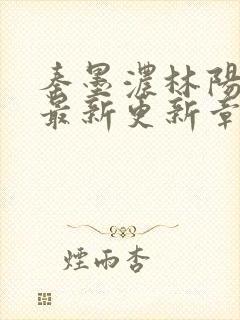 秦墨濃林陽
最新更新章
煙雨杏